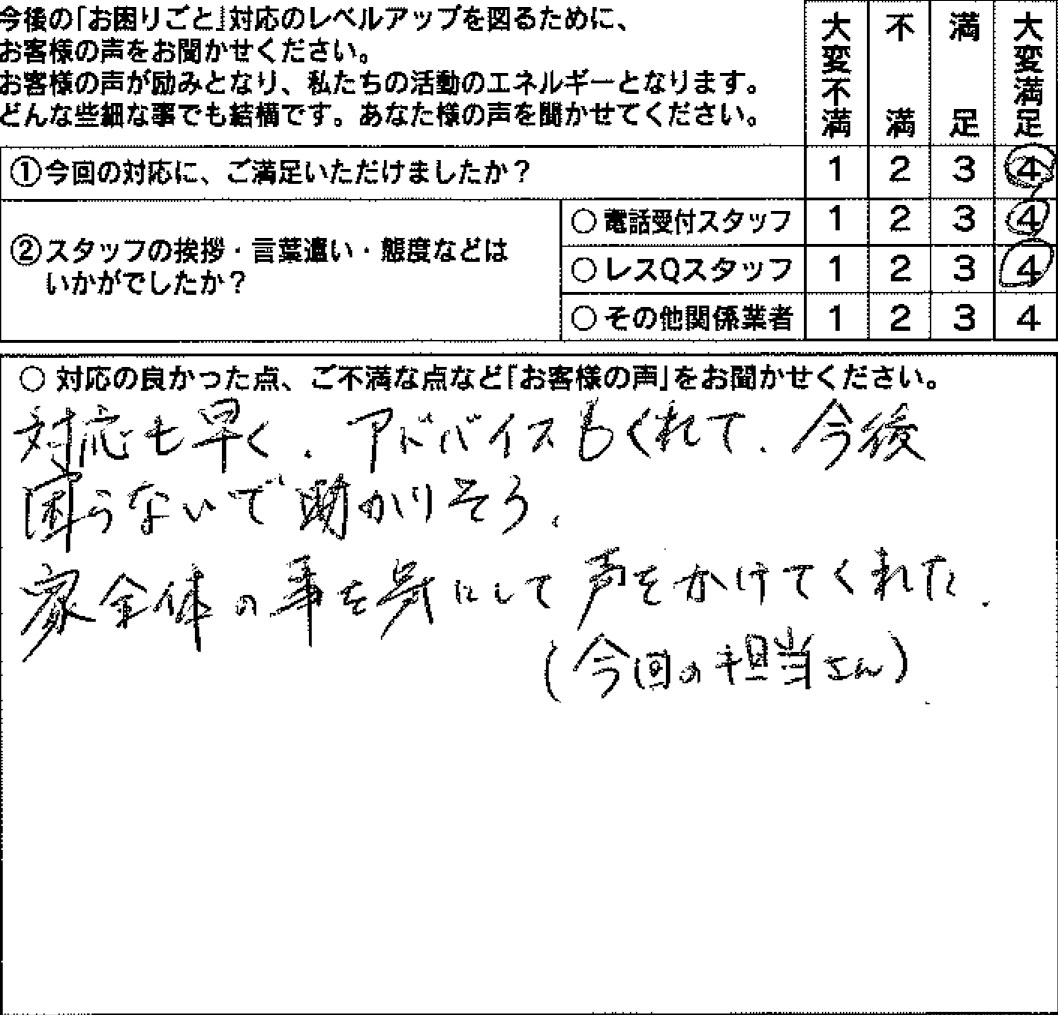 今後の「お困りごと」対応のレベルアップを図るために、
お客様の声をお聞かせください。
お客様の声が励みとなり、私たちの活動のエネルギーとなります。
どんな些細な事でも結構です。あなた様の声を聞かせてください。
大変不満 不満 満足 大変満足
①今回の対応に、ご満足いただけましたか？ 1 2 3 4
②スタッフの挨拶・言葉遣い・態度などは
いかがでしたか？
○電話受付スタッフ 1 2 3 4
○レスQスタッフ 1 2 3 4
○その他関係業者 1 2 3 4
○対応の良かった点、ご不満な点など「お客様の声」をお聞かせください。
対応も早く、アドバイスもくれて、今後
困らないで助かりそう。
家全体の事を気にして声をかけてくれた。
(今回の担当さん)